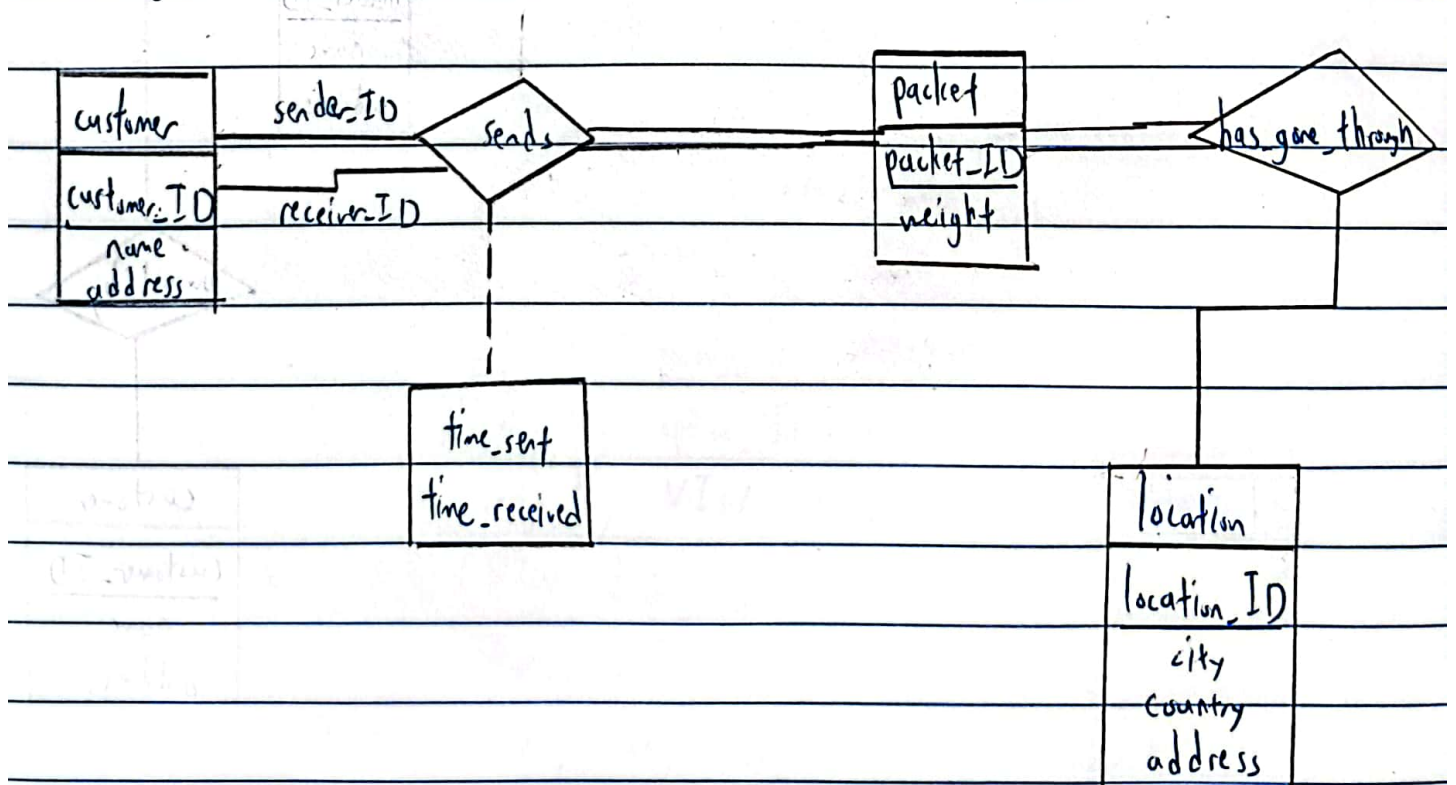 customer
customer_ID
name
address
sender_ID
receiver_ID
sends
time_sent
time_received
packet
packet_ID
weight
has_gone_through
location
location_ID
city
country
address